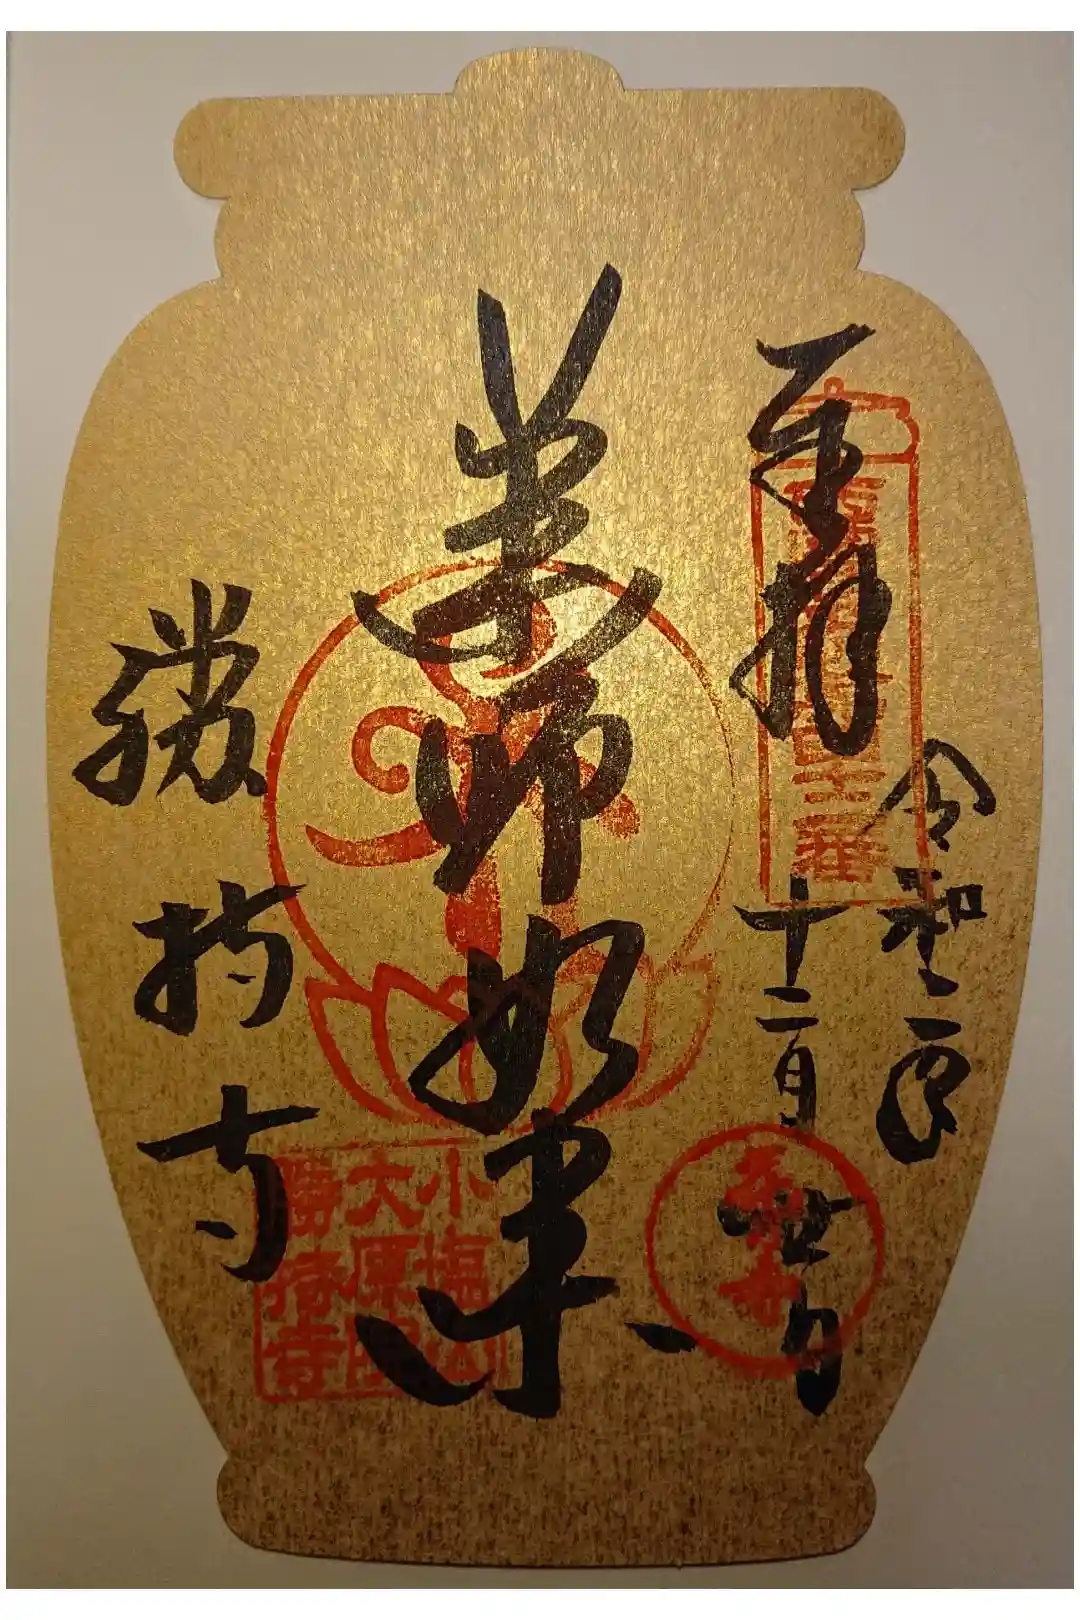 奉拝
令和二年
十二月廿日
薬師如来
勝持寺
小塩山
大原院
勝持寺